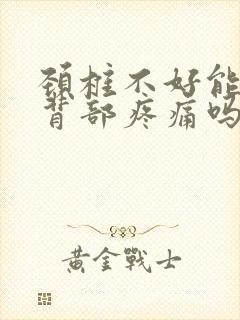 颈椎不好能
背部疼痛吗
黄金戰士